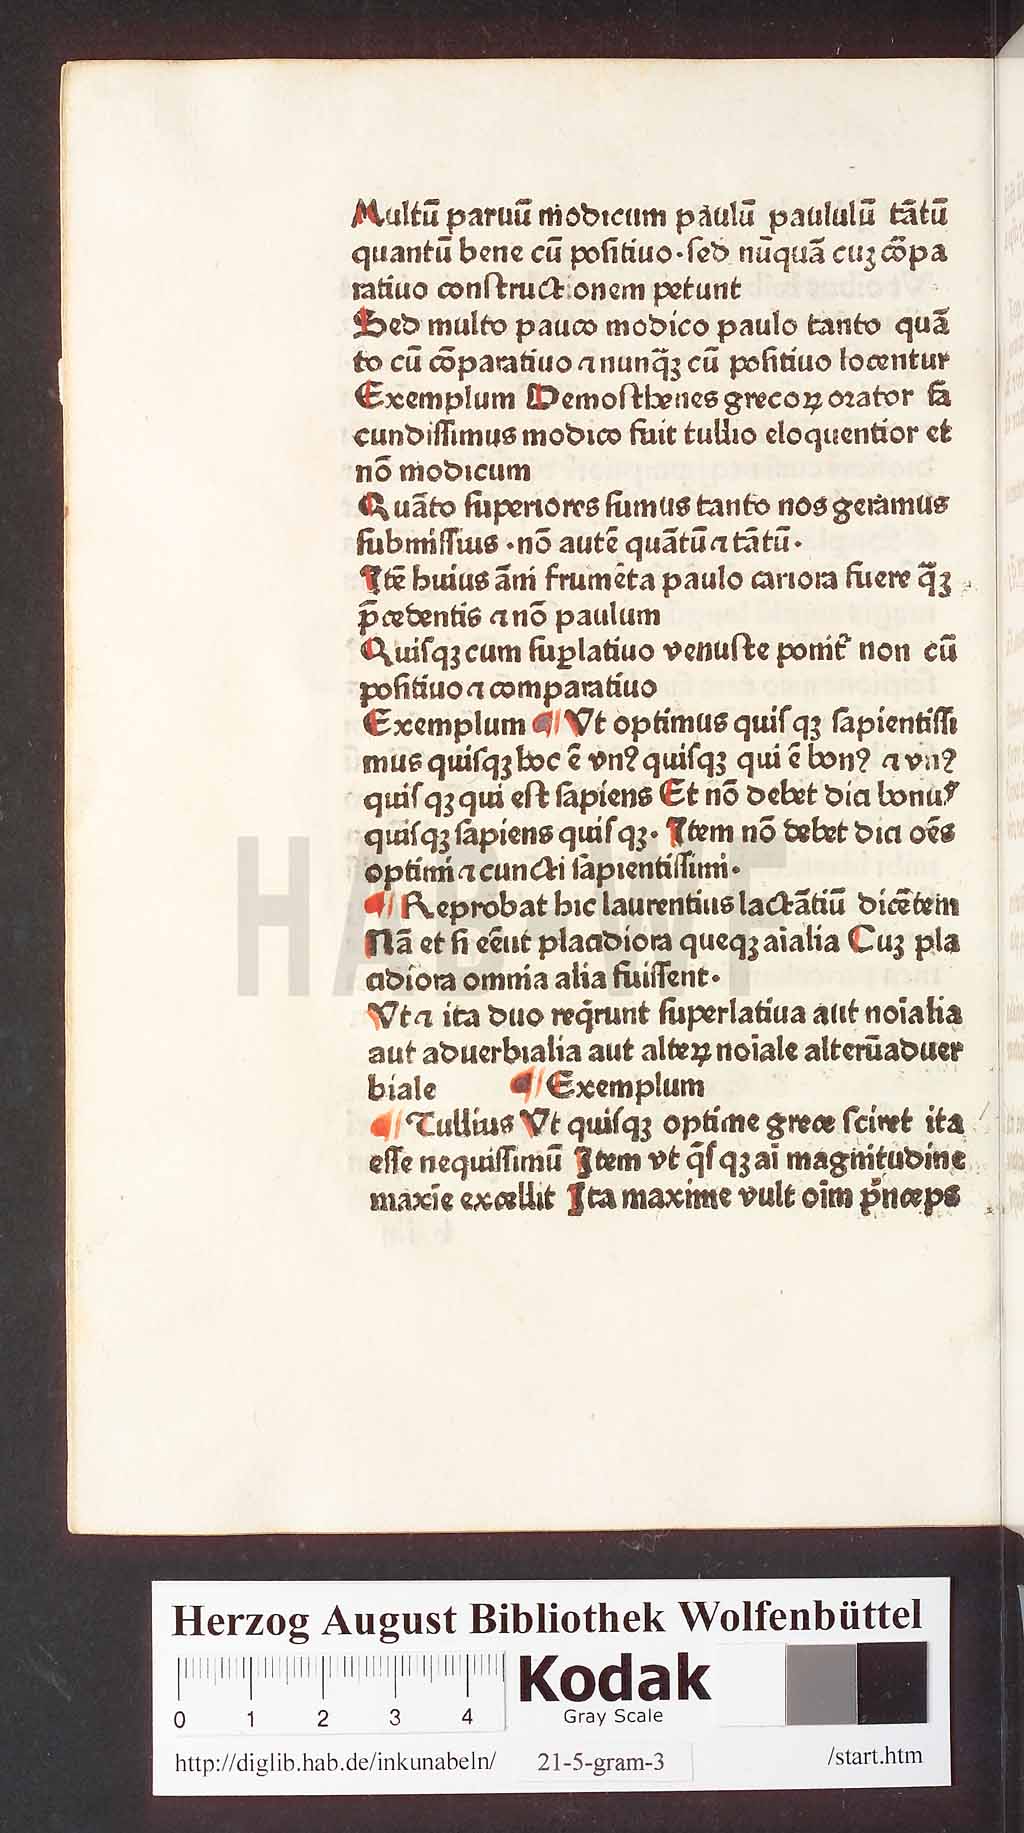 Multū paruū modicum paulū paululū tātū
quantū bene cū poſitiuo·ſed nūquā cuꝫ cōpa
ratiuo conſtructionem petunt
Sed multo pauco modico paulo tanto quā
to cū cōparatiuo ⁊ nunq̄ꝫ cū poſitiuo locentur
Exemplum Demoſthenes grecoꝝ orator fa
cundiſſimus modico fuit tullio eloquentior et
nō modicum
Quāto ſuperiores ſumus tanto nos geramus
ſubmiſſius ·nō autē quātū ⁊ tātū·
Itē huius āni frumēta paulo cariora fuere q̄ꝫ
p̄cedentis ⁊ nō paulum
Quiſqꝫ cum ſuꝑlatiuo venuſte ponit᷑ non cū
poſitiuo ⁊ comparatiuo
Exemplum ¶ Vt optimus quiſqꝫ ſapientiſſi
mus quiſqꝫ hoc ē vnꝰ quiſqꝫ qui ē bonꝰ ⁊ vnꝰ
quiſqꝫ qui eſt ſapiens Et nō debet dici bonus
quiſqꝫ ſapiens quiſqꝫ· Item nō debet dici oēs
optimi ⁊ cuncti ſapientiſſimi·
¶ Reprobat hic laurentius lactātiū dicētem
Nā et ſi eēut placidiora queqꝫ aialia Cuꝫ pla
cidiora omnia alia fuiſſent·
Vt ⁊ ita duo req̄runt ſuperlatiua aut noīalia
aut aduerbialia aut alteꝝ noīale alterū aduer
biale ¶ Exemplum
¶ Tullius Vt quiſqꝫ optime grece ſciret ita
eſſe nequiſſimū Item vt q̄ſqꝫ aī magnitudine
maxīe excellit Ita maxime vult oīm p̄nceps
HAB WF
Herzog August Bibliothek Wolfenbüttel
0 1 2 3 4
Kodak
Gray Scale
http://diglib.hab.de/inkunabeln/ 21-5-gram-3 /start.htm